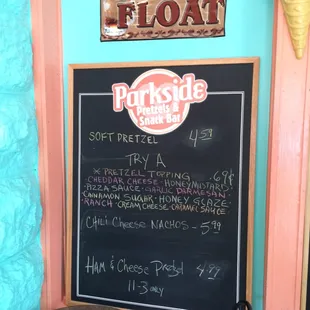 FLOAT
Parkside
Pretzels &
Snack Bar
SOFT PRETZEL 4.59
TRY A
* PRETZEL TOPPING .69¢
CHEDDAR CHEESE · HONEY MUSTARD
· PIZZA SAUCE · GARLIC PARMESAN
CINNAMON SUGAR · HONEY GLAZE ·
RANCH · CREAM CHEESE · CARAMEL SAUCE
CHILI CHEESE NACHOS - 5.99
HAM & CHEESE Pretzel 4.99
11-3 only